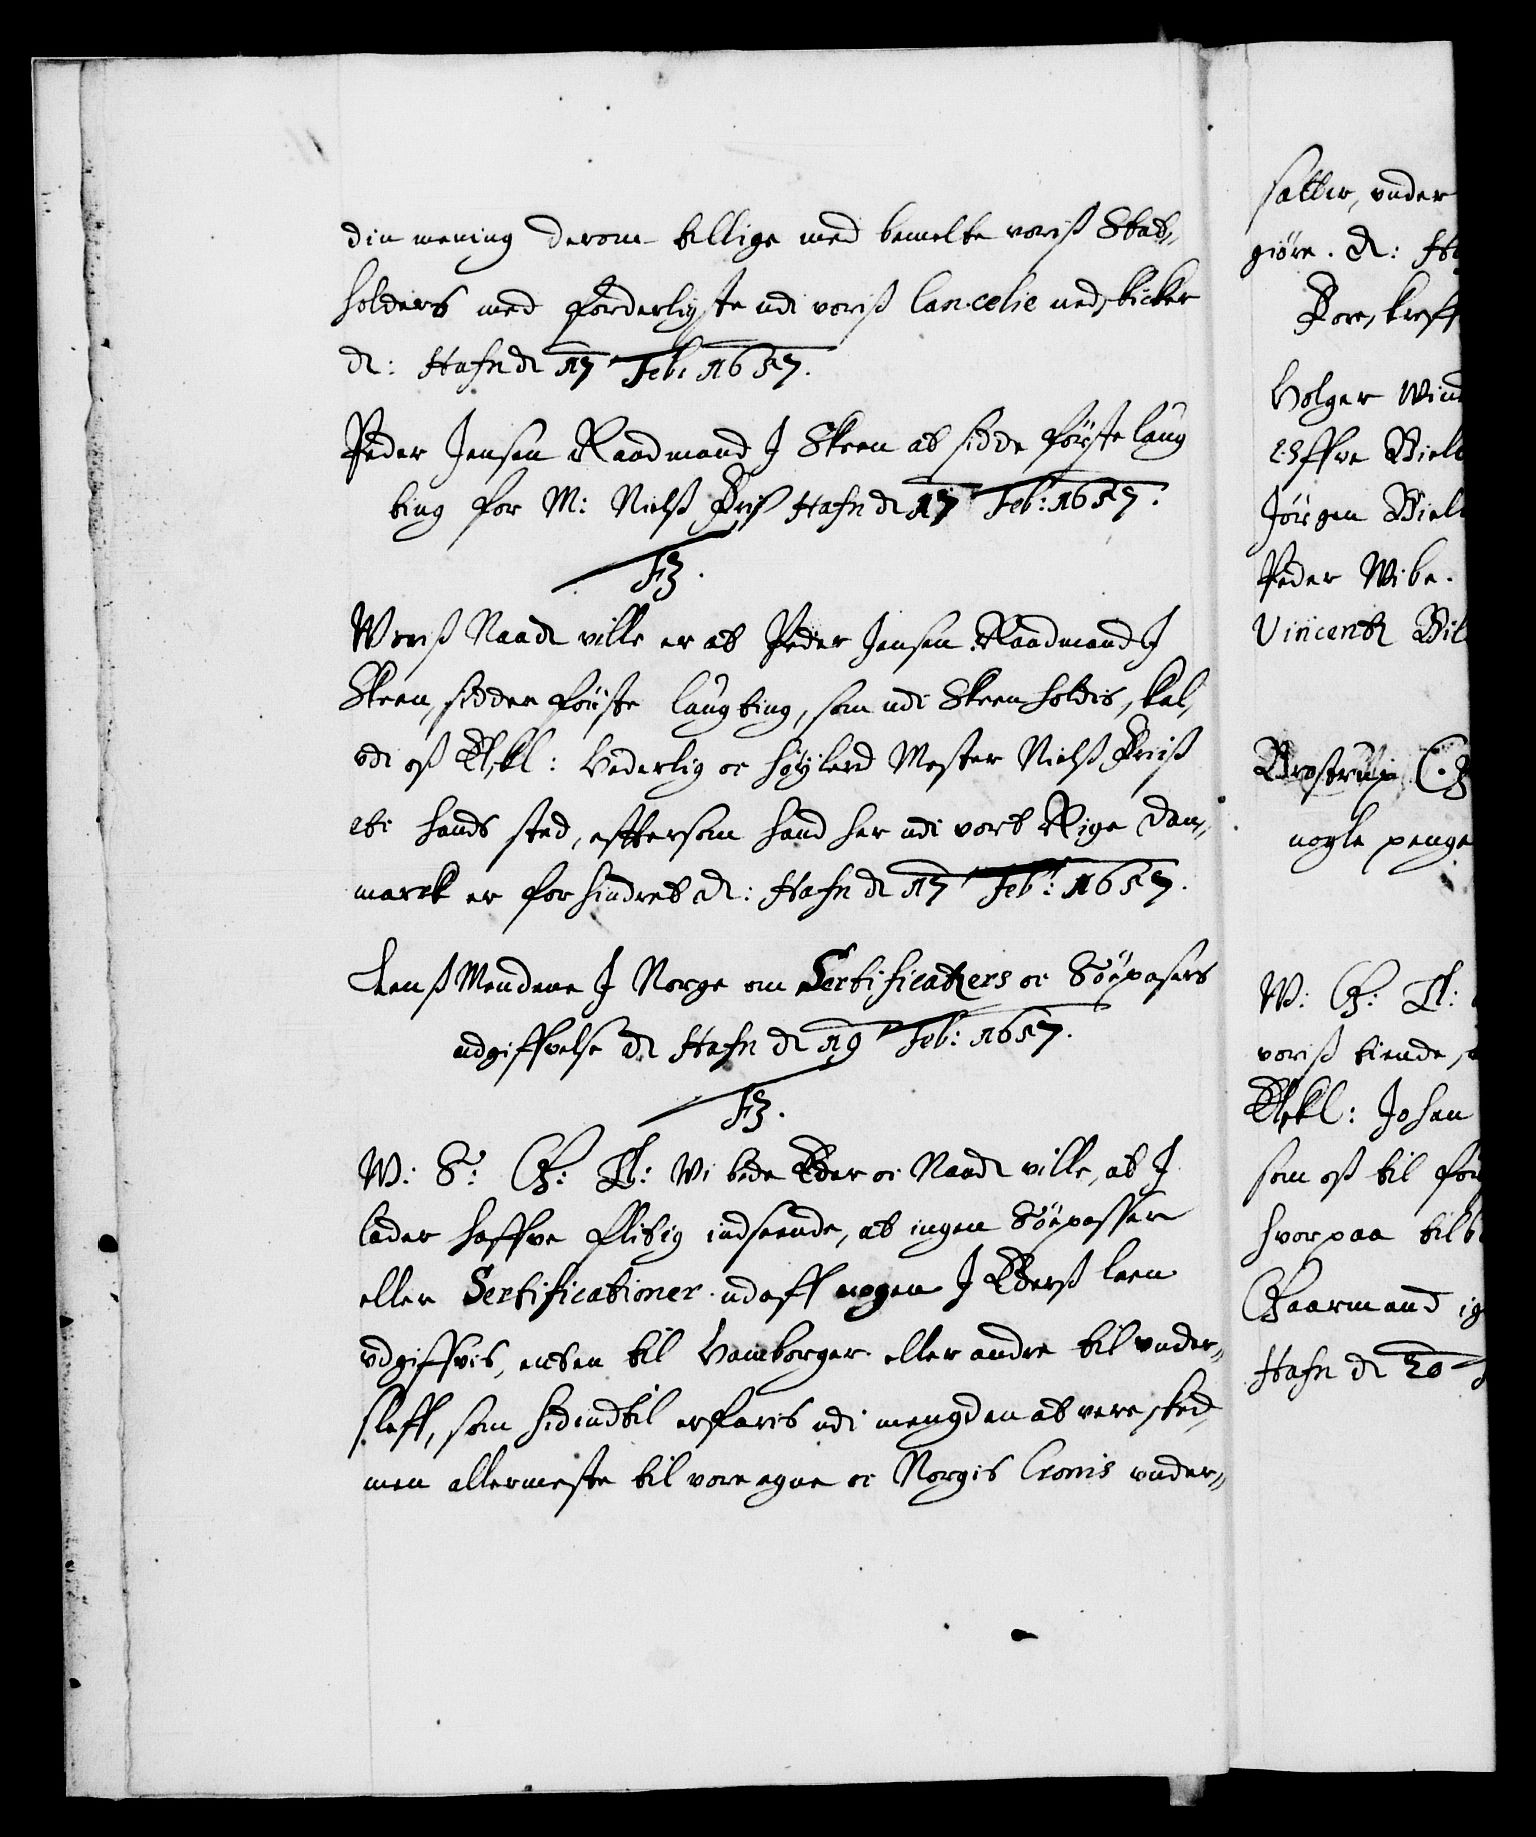 din mening derom tillige med bemelte voriß Stat,,
holders med forderligste udi voriß Cancelie nedskicker
dt: Hafn dt 17 Feb: 1657.
Peder Jensen Raadmand J Skeen at sidde første laug
ting for M: Nielß Friß Hafn dt 17 Feb: 1657.
F3.
Woriß Naadt ville er at Peder Jensen Raadmand J
Skeen, sidder første laugting, som udi Skeen holdis, skal,
udi oß Elskl: Hederlig oc Høylerd Mester Nielß Frieß
eti hands sted, effttersom hand her udi vort Rige Dan,,
marck er forhindret dt: Hafn dt 17 Feb: 1657.
Lenß Mendene J Norge om Sertificatzers oc Söepasers
udgiffvelse dt Hafn dt 19 Feb: 1657.
F3.
W: S: G: T: Wi bede Eder oc Naadt ville, at J
lader haffve flitig indseende, at ingen Söepasser
eller Sertificationer udaff nogen J Ederß leen
udgiffvis, enten til Hamborger eller andre til under,,
sleff, som hidindtil erfaris udi mengden at vere sked,
men allermeste til vore egne oc Norgis Cronis under,,
satter, under
giöre. dt: Ha
Foreskreff
Holger Wind
Offve Biel
Jörgen Biel
Peder Wibe.
Vincentz Bil
Brostrup G
nogle penge
W: G: T:
voriß tiende,
Elskl: Johan
som oß til for
hvorpaa tilb
Gaarmand ig
Hafn dt 20